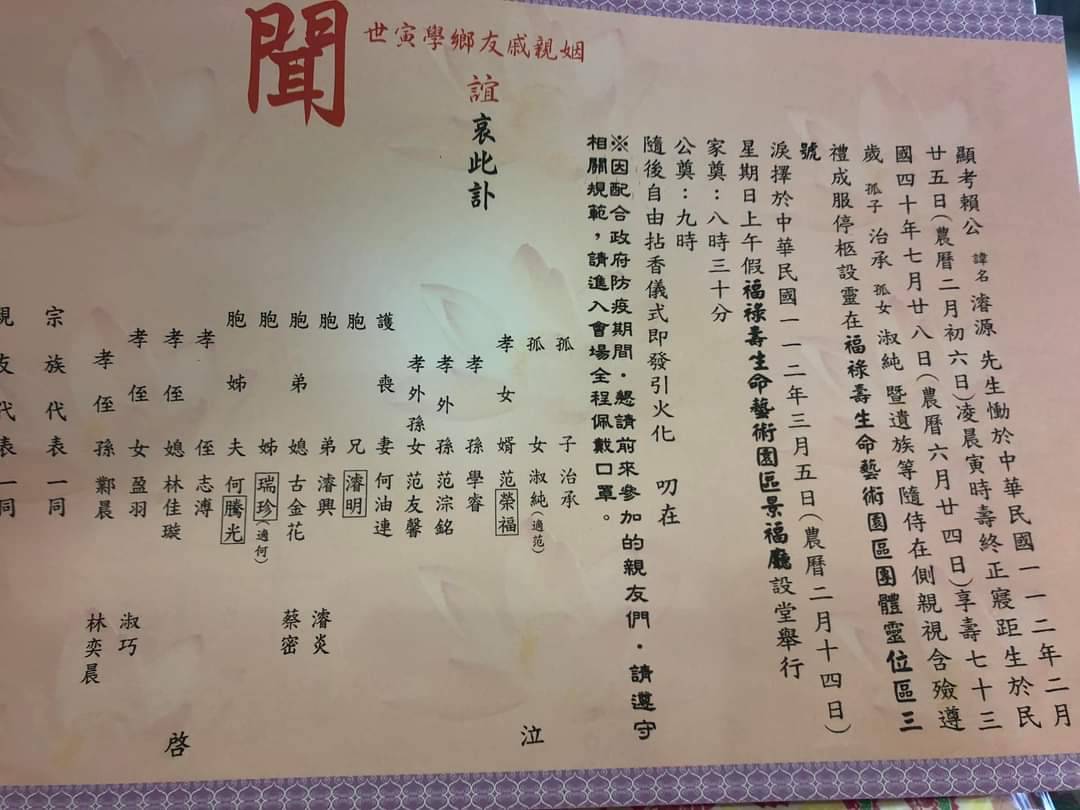 顯考賴公 諱名 濬源 先生慟於中華民國一一二年二月
廿五日(農曆二月初六日)凌晨寅時壽終正寢距生於民
國四十年七月廿八日(農曆六月廿四日)享壽七十三
歲 孤子 治承 孤女 淑純 暨遺族等隨侍在側親視含殮遵
禮成服停柩設靈在福祿壽生命藝術園區團體靈位區三
號
淚擇於中華民國一一二年三月五日(農曆二月十四日)
星期日上午假福祿壽生命藝術園區景福廳設堂舉行
家奠:八時三十分
公奠:九時
隨後自由拈香儀式即發引火化 叨在
※因配合政府防疫期間.懇請前來參加的親友們.請遵守
相關規範,請進入會場全程佩戴口罩。
姻親戚友鄉學寅世
誼 哀此訃
聞
孤子 治承
孤女 淑純(適范)
孝女婿 范榮福
孝孫 學睿
孝外孫 范淙銘
孝外孫女 范友馨
護喪妻 何油連
胞兄 濬明
胞弟 濬興 濬炎
胞弟媳 古金花 蔡密
胞姊 瑞珍(適何)
胞姊夫 何騰光
孝侄 志溥
孝侄媳 林佳璇
孝侄女 盈羽 淑巧
孝侄孫 鄴晨 林奕晨
宗族代表一同
親友代表一同
泣
啓